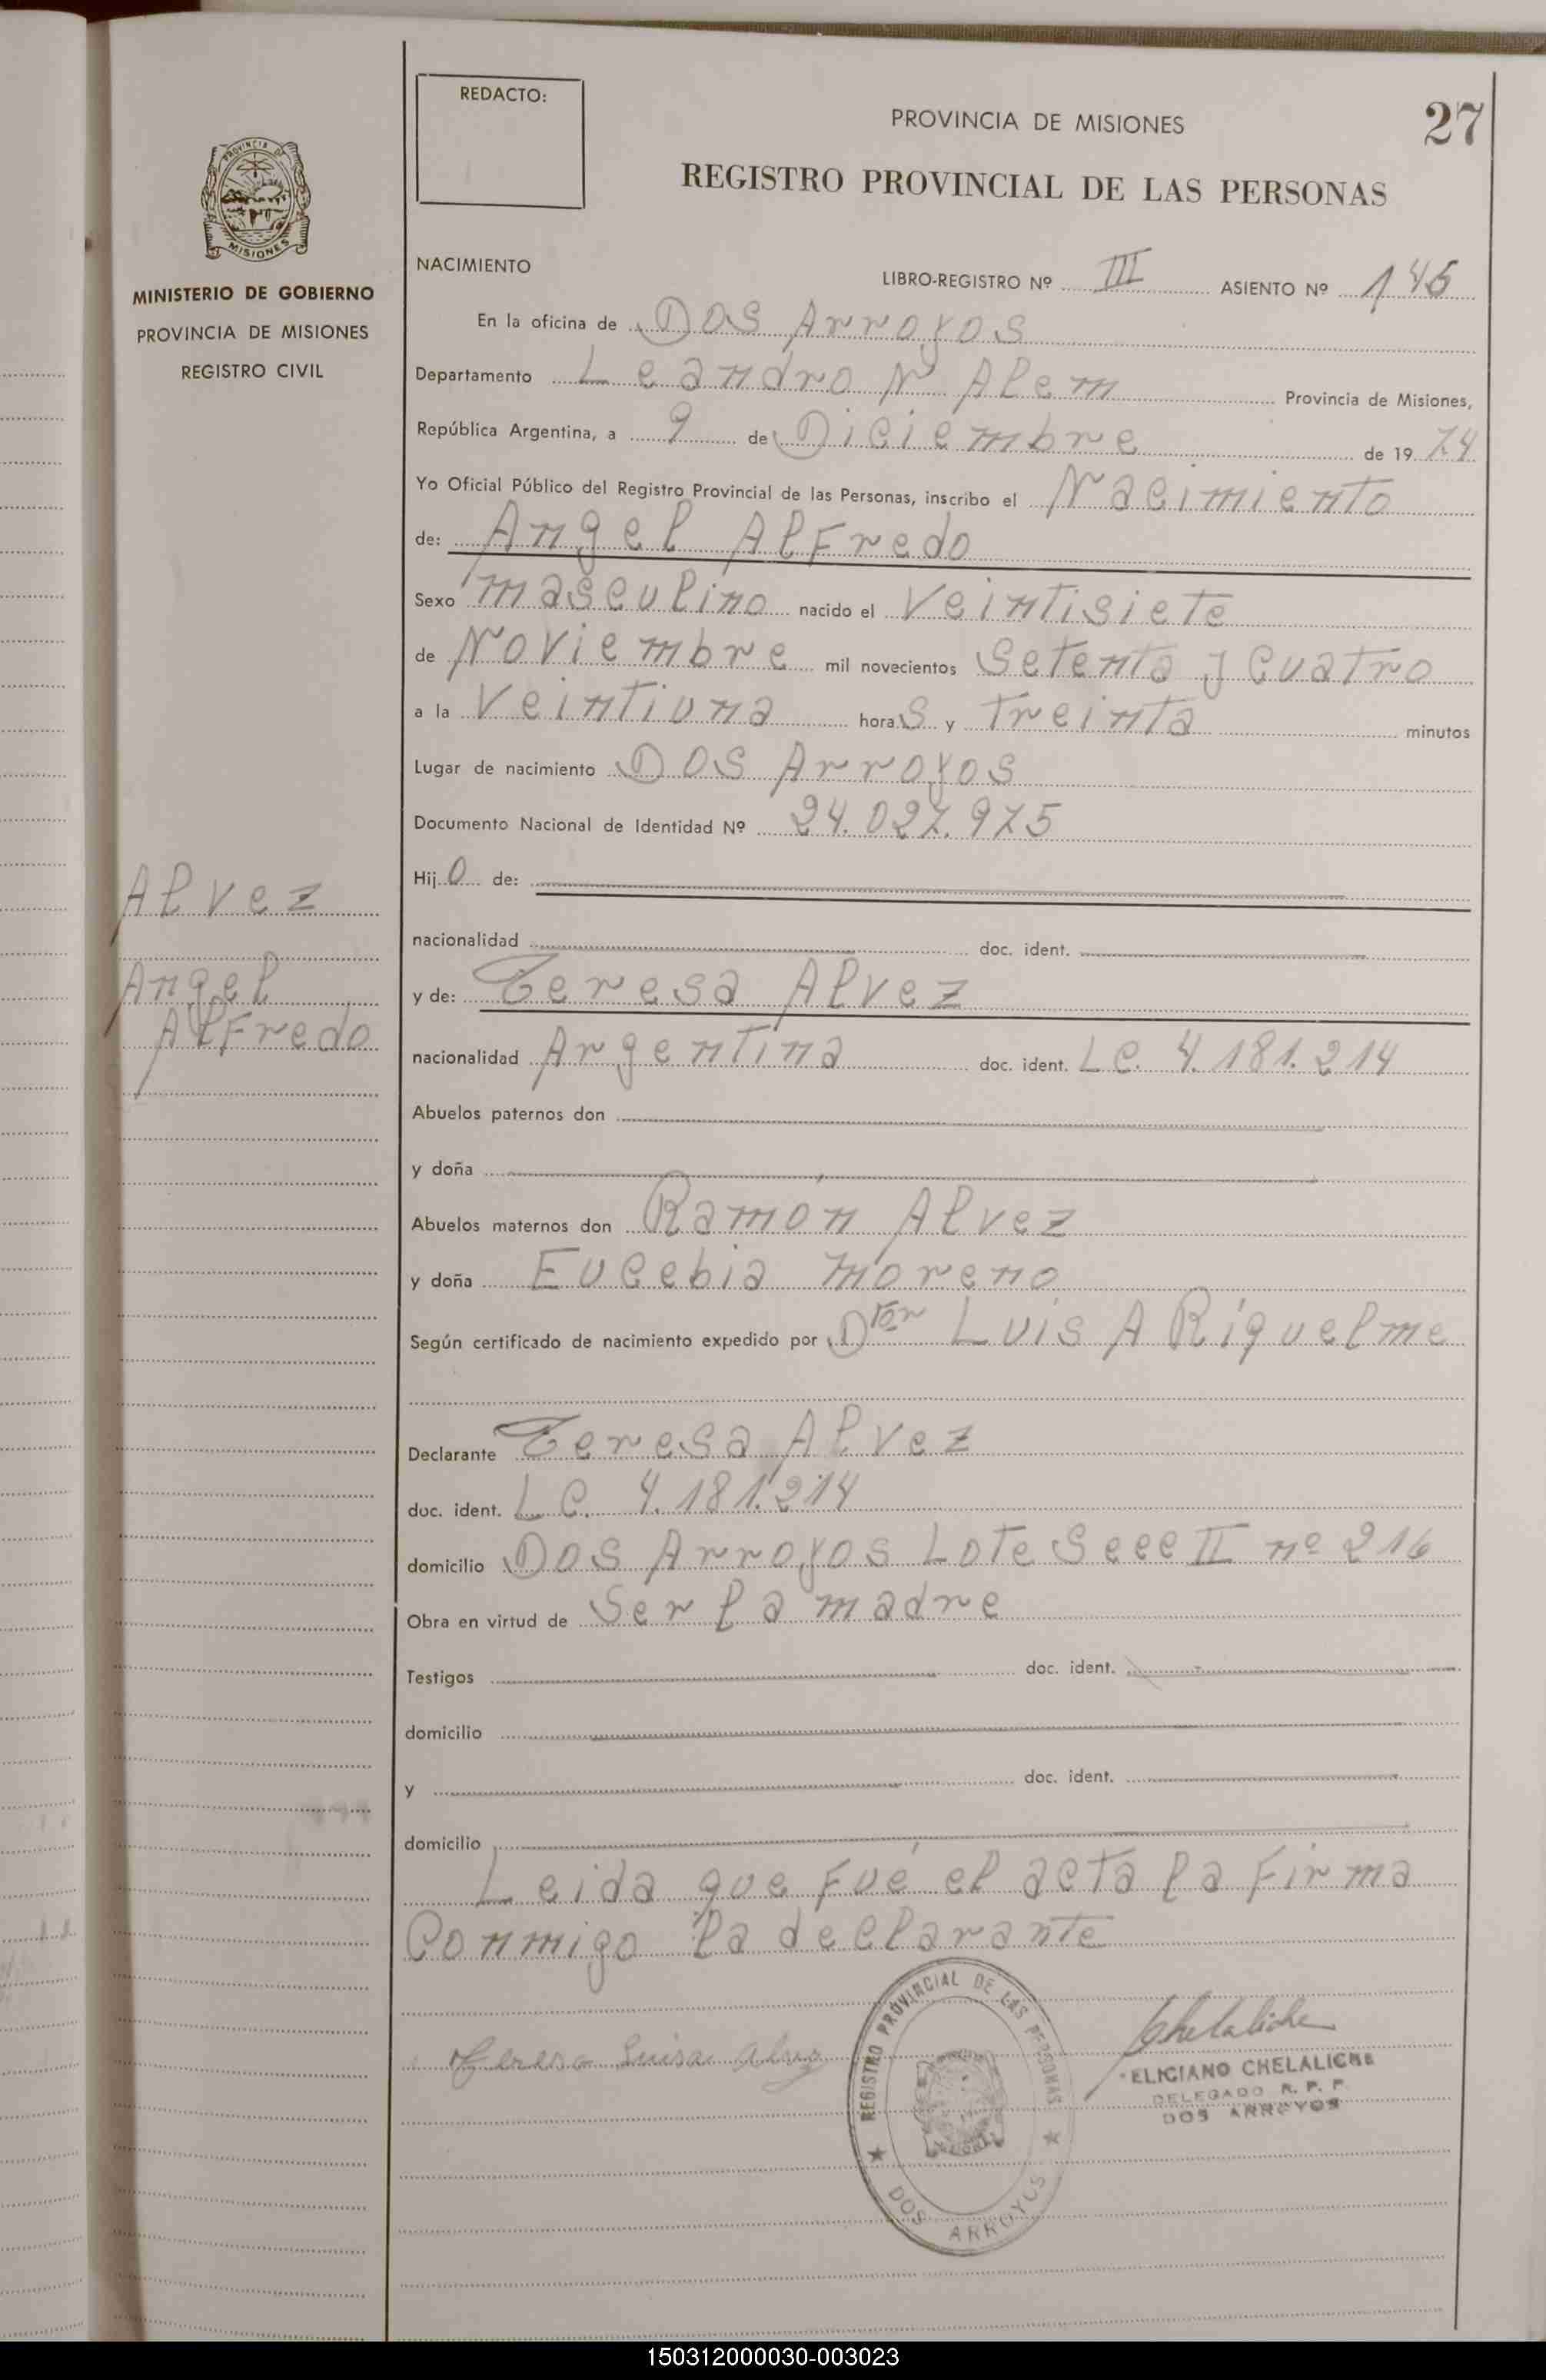 REDACTO:
PROVINCIA DE MISIONES
27
REGISTRO PROVINCIAL DE LAS PERSONAS
PROVINCIA DE
MISIONES
MINISTERIO DE GOBIERNO
PROVINCIA DE MISIONES
REGISTRO CIVIL
NACIMIENTO
LIBRO-REGISTRO Nº III ASIENTO Nº 145
En la oficina de Dos Arroyos
Departamento Leandro N Alem Provincia de Misiones,
República Argentina, a 9 de Diciembre de 1974
Yo Oficial Público del Registro Provincial de las Personas, inscribo el Nacimiento
de: Angel Alfredo
Sexo masculino nacido el Veintisiete
de Noviembre mil novecientos Setenta y Cuatro
a la Veintiuna horas y Treinta minutos
Lugar de nacimiento Dos Arroyos
Documento Nacional de Identidad Nº 24.027.975
Hijo de:
nacionalidad doc. ident.
y de: Teresa Alvez
nacionalidad Argentina doc. ident. LC. 4.181.214
Abuelos paternos don
y doña
Abuelos maternos don Ramón Alvez
y doña Eucebia Moreno
Según certificado de nacimiento expedido por Dtor Luis A Riquelme
Declarante Teresa Alvez
doc. ident. LC. 4.181.214
domicilio Dos Arroyos Lote Secc II nº 216
Obra en virtud de Ser la madre
Testigos doc. ident.
domicilio
y doc. ident.
domicilio
Leida que fué el acta la firma
Conmigo la declarante
Alvez
Angel
Alfredo
Teresa Luisa Alvez
REGISTRO PROVINCIAL DE LAS PERSONAS
DOS ARROYOS
Chelaliche
ELICIANO CHELALICHE
DELEGADO R. P. P.
DOS ARROYOS
150312000030-003023